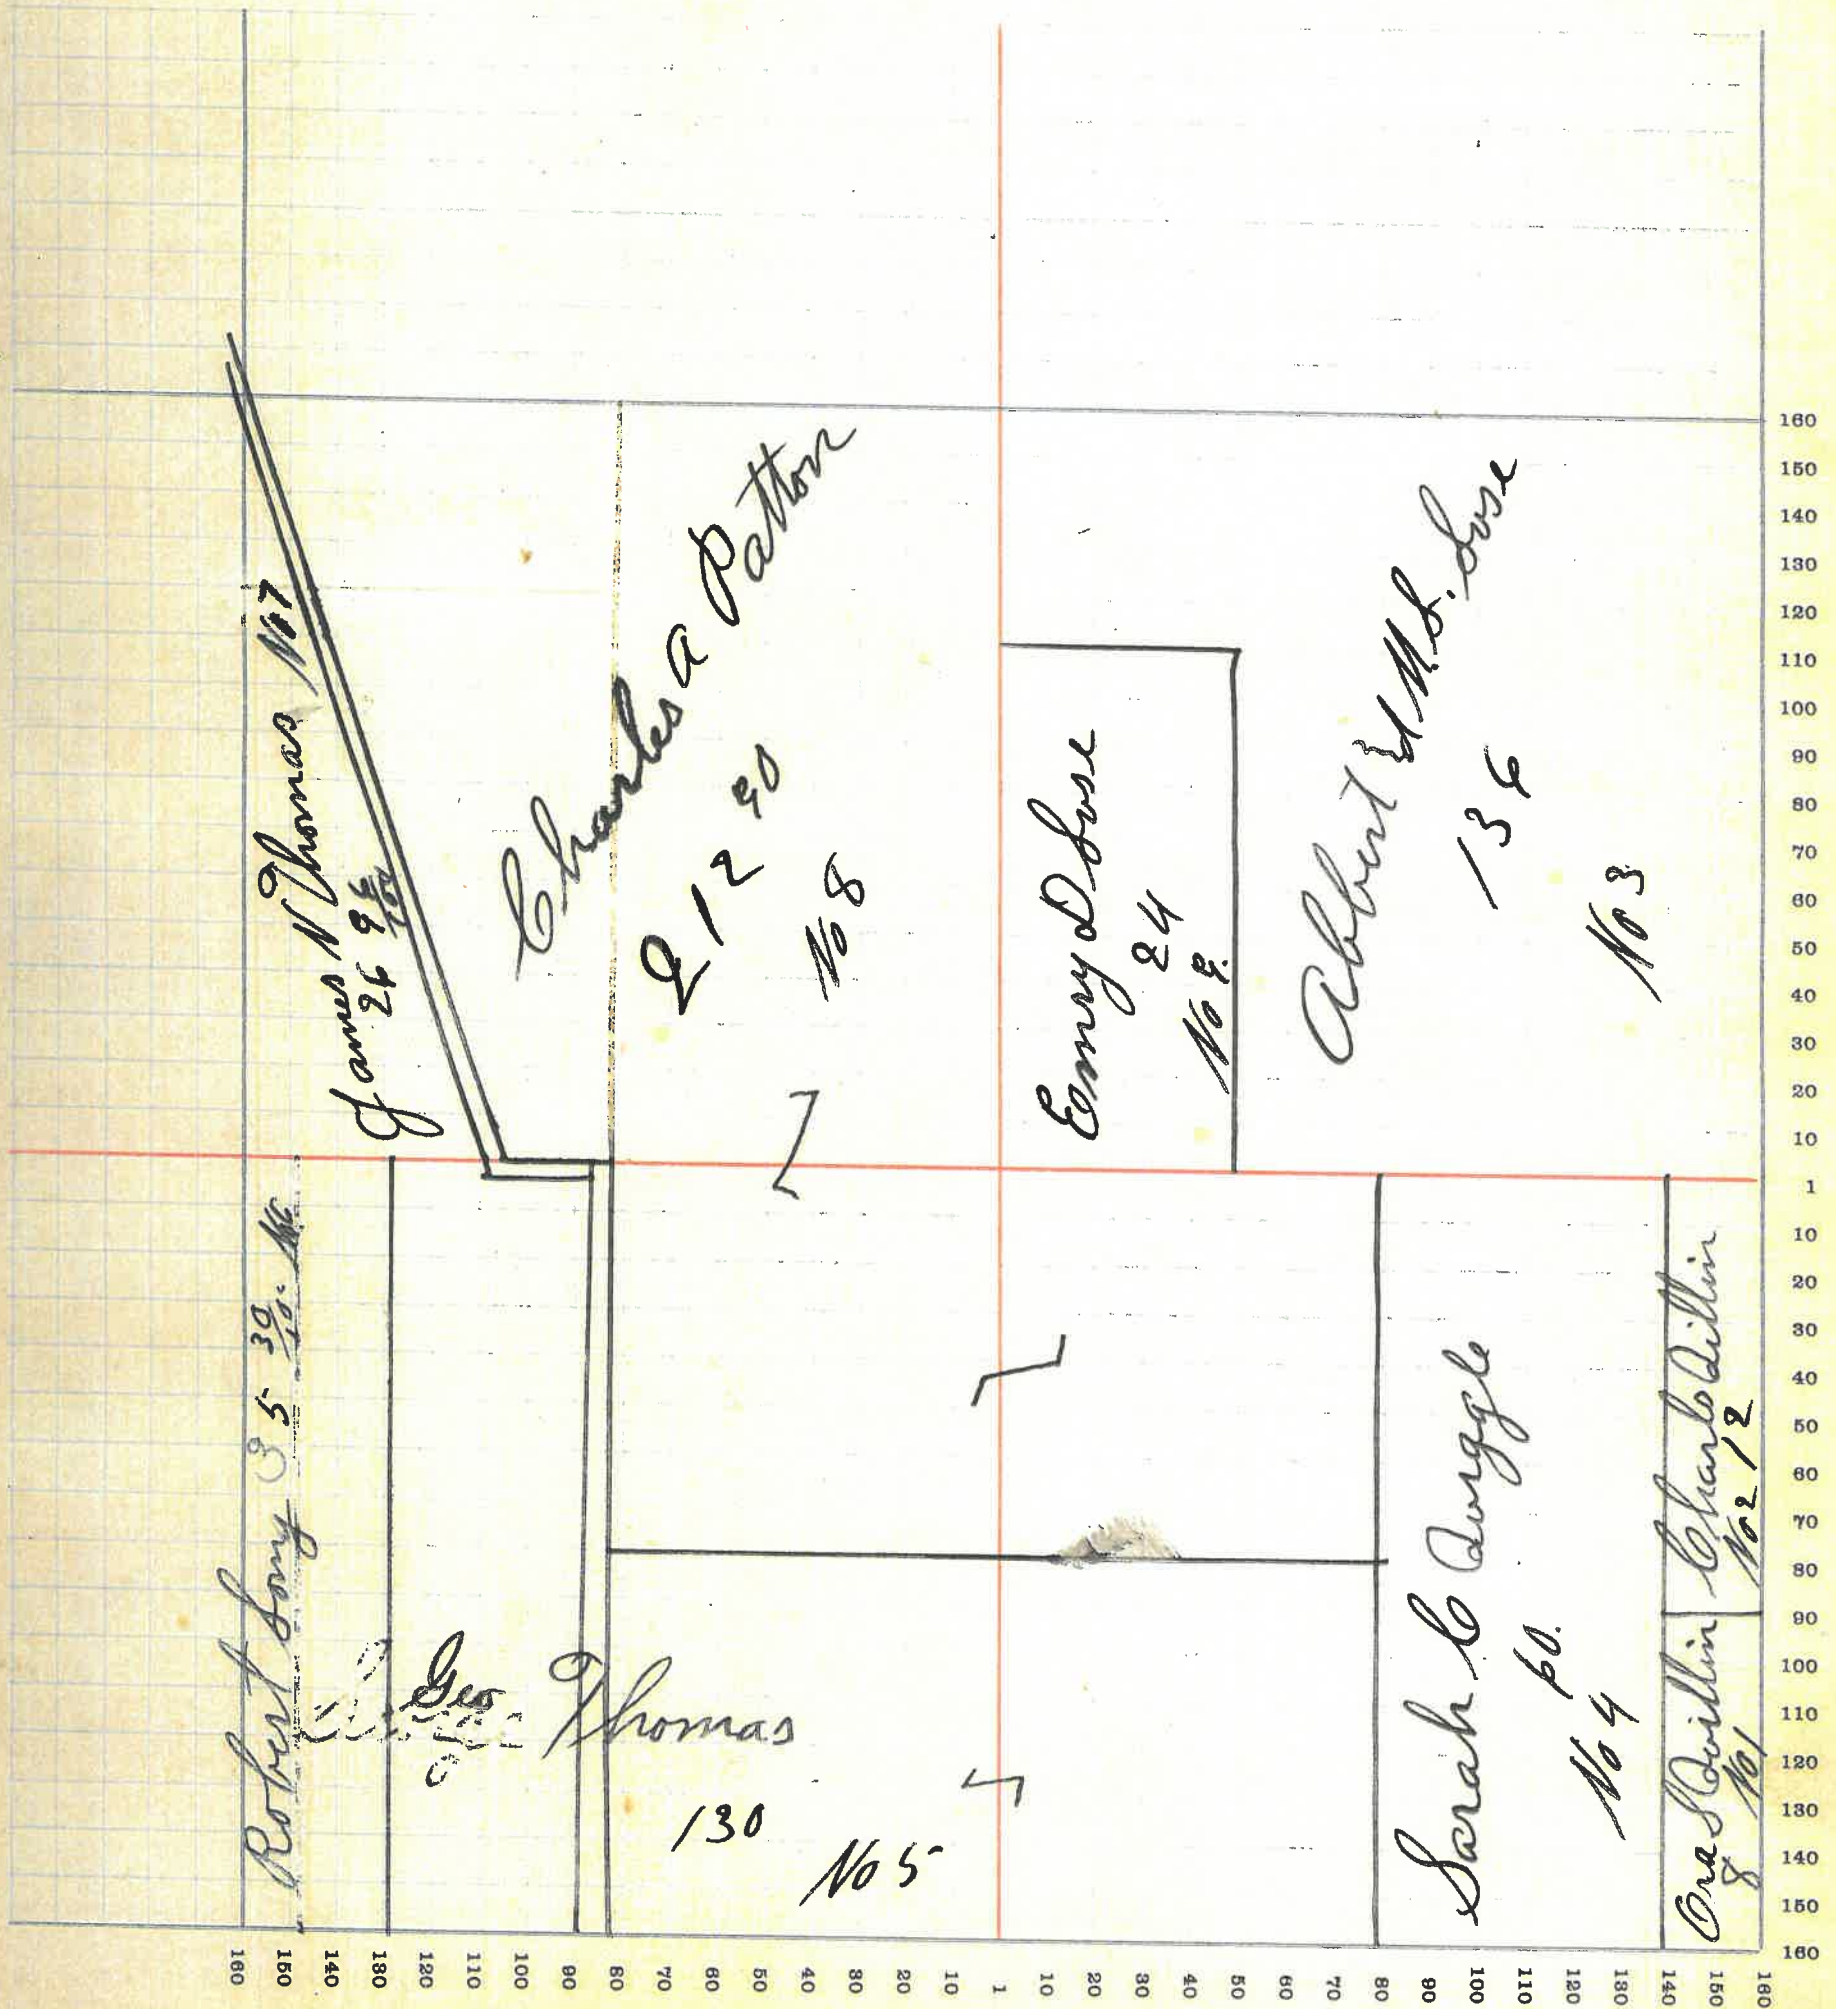 James N Thomas No 7
26 96/100
Charles A Patton
212 90
No 8
Emry D
24
No 9.
Albert & M S.
136
No 3
Robert
35 30/100
Geo Thomas
130
No 5
Sarah C Quiggle
60.
No 4
Charls Quillin
No 2 12
Ora S Quillin
8 No 1
160
150
140
130
120
110
100
90
80
70
60
50
40
30
20
10
1
10
20
30
40
50
60
70
80
90
100
110
120
130
140
150
160
160
150
140
130
120
110
100
90
80
70
60
50
40
30
20
10
1
10
20
30
40
50
60
70
80
90
100
110
120
130
140
150
160